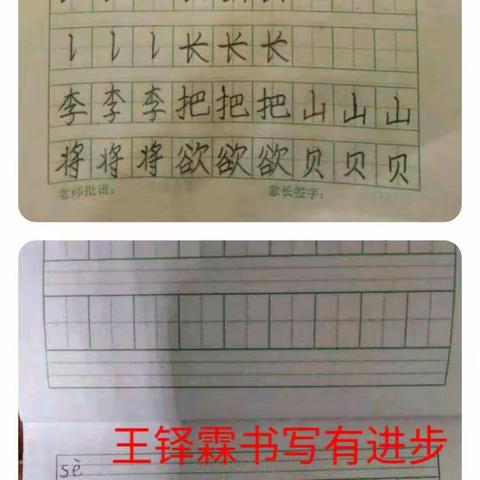 乚 乚 乚 长 长 长
李 李 李 把 把 把 山 山 山
将 将 将 欲 欲 欲 贝 贝 贝
老师批语: 家长签字:
王铎霖书写有进步
sè